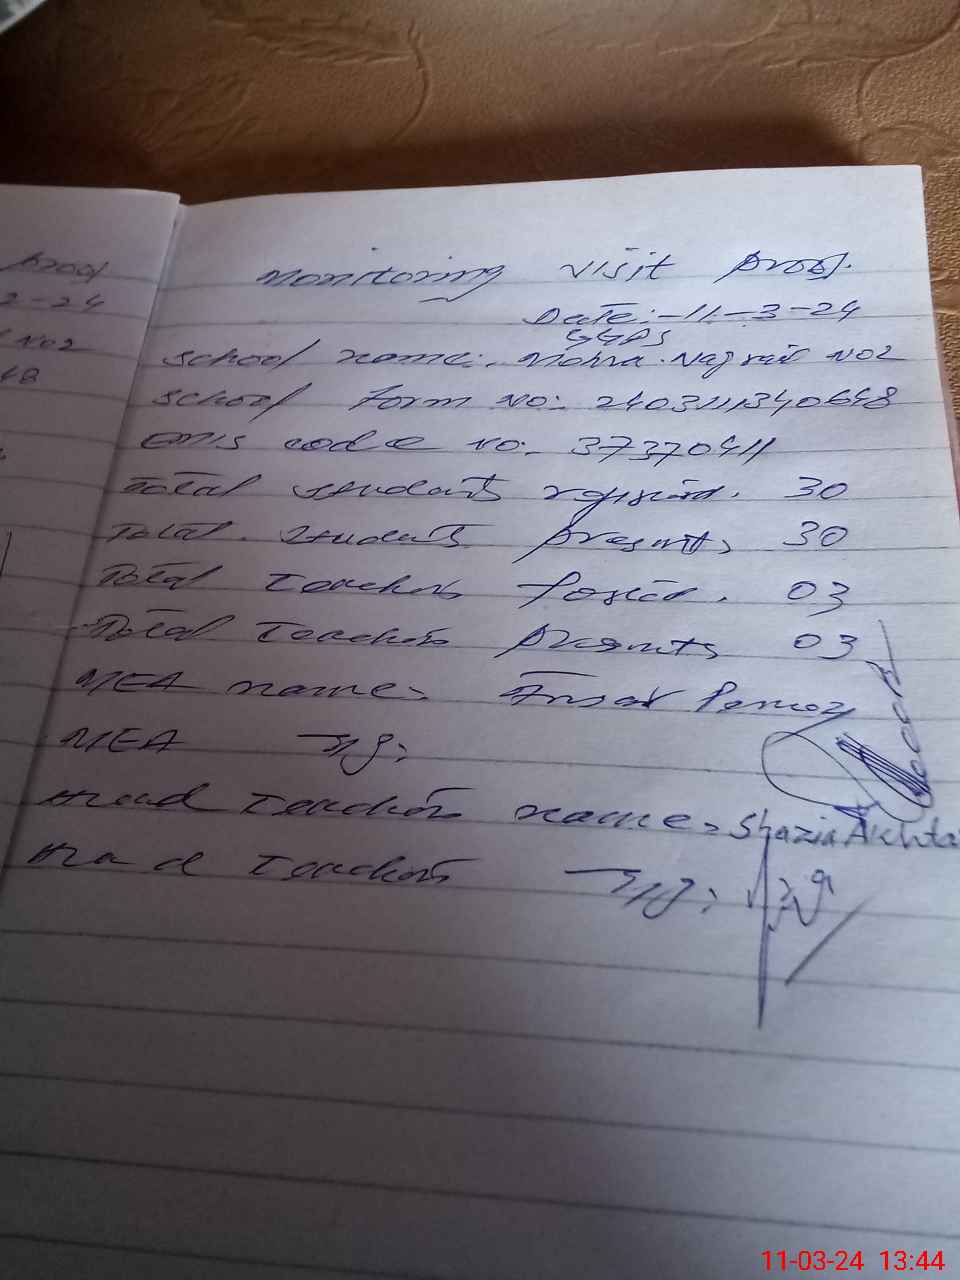 prool
2-24
No2
48
Monitoring visit prool.
Date:-11-3-24
GGPS
School name:. Mohra. Nagrail No2
School Form No:- 240311134068
EMIS code No:- 37370411
Total students registerd. 30
Total. Students presents 30
Total Teachers Posted. 03
Total Teachers presents 03
MEA name:- Ansar Pervez
MEA sig:
Head Teachers name:- Shazia Akhta
Head Teachers sig:
11-03-24 13:44